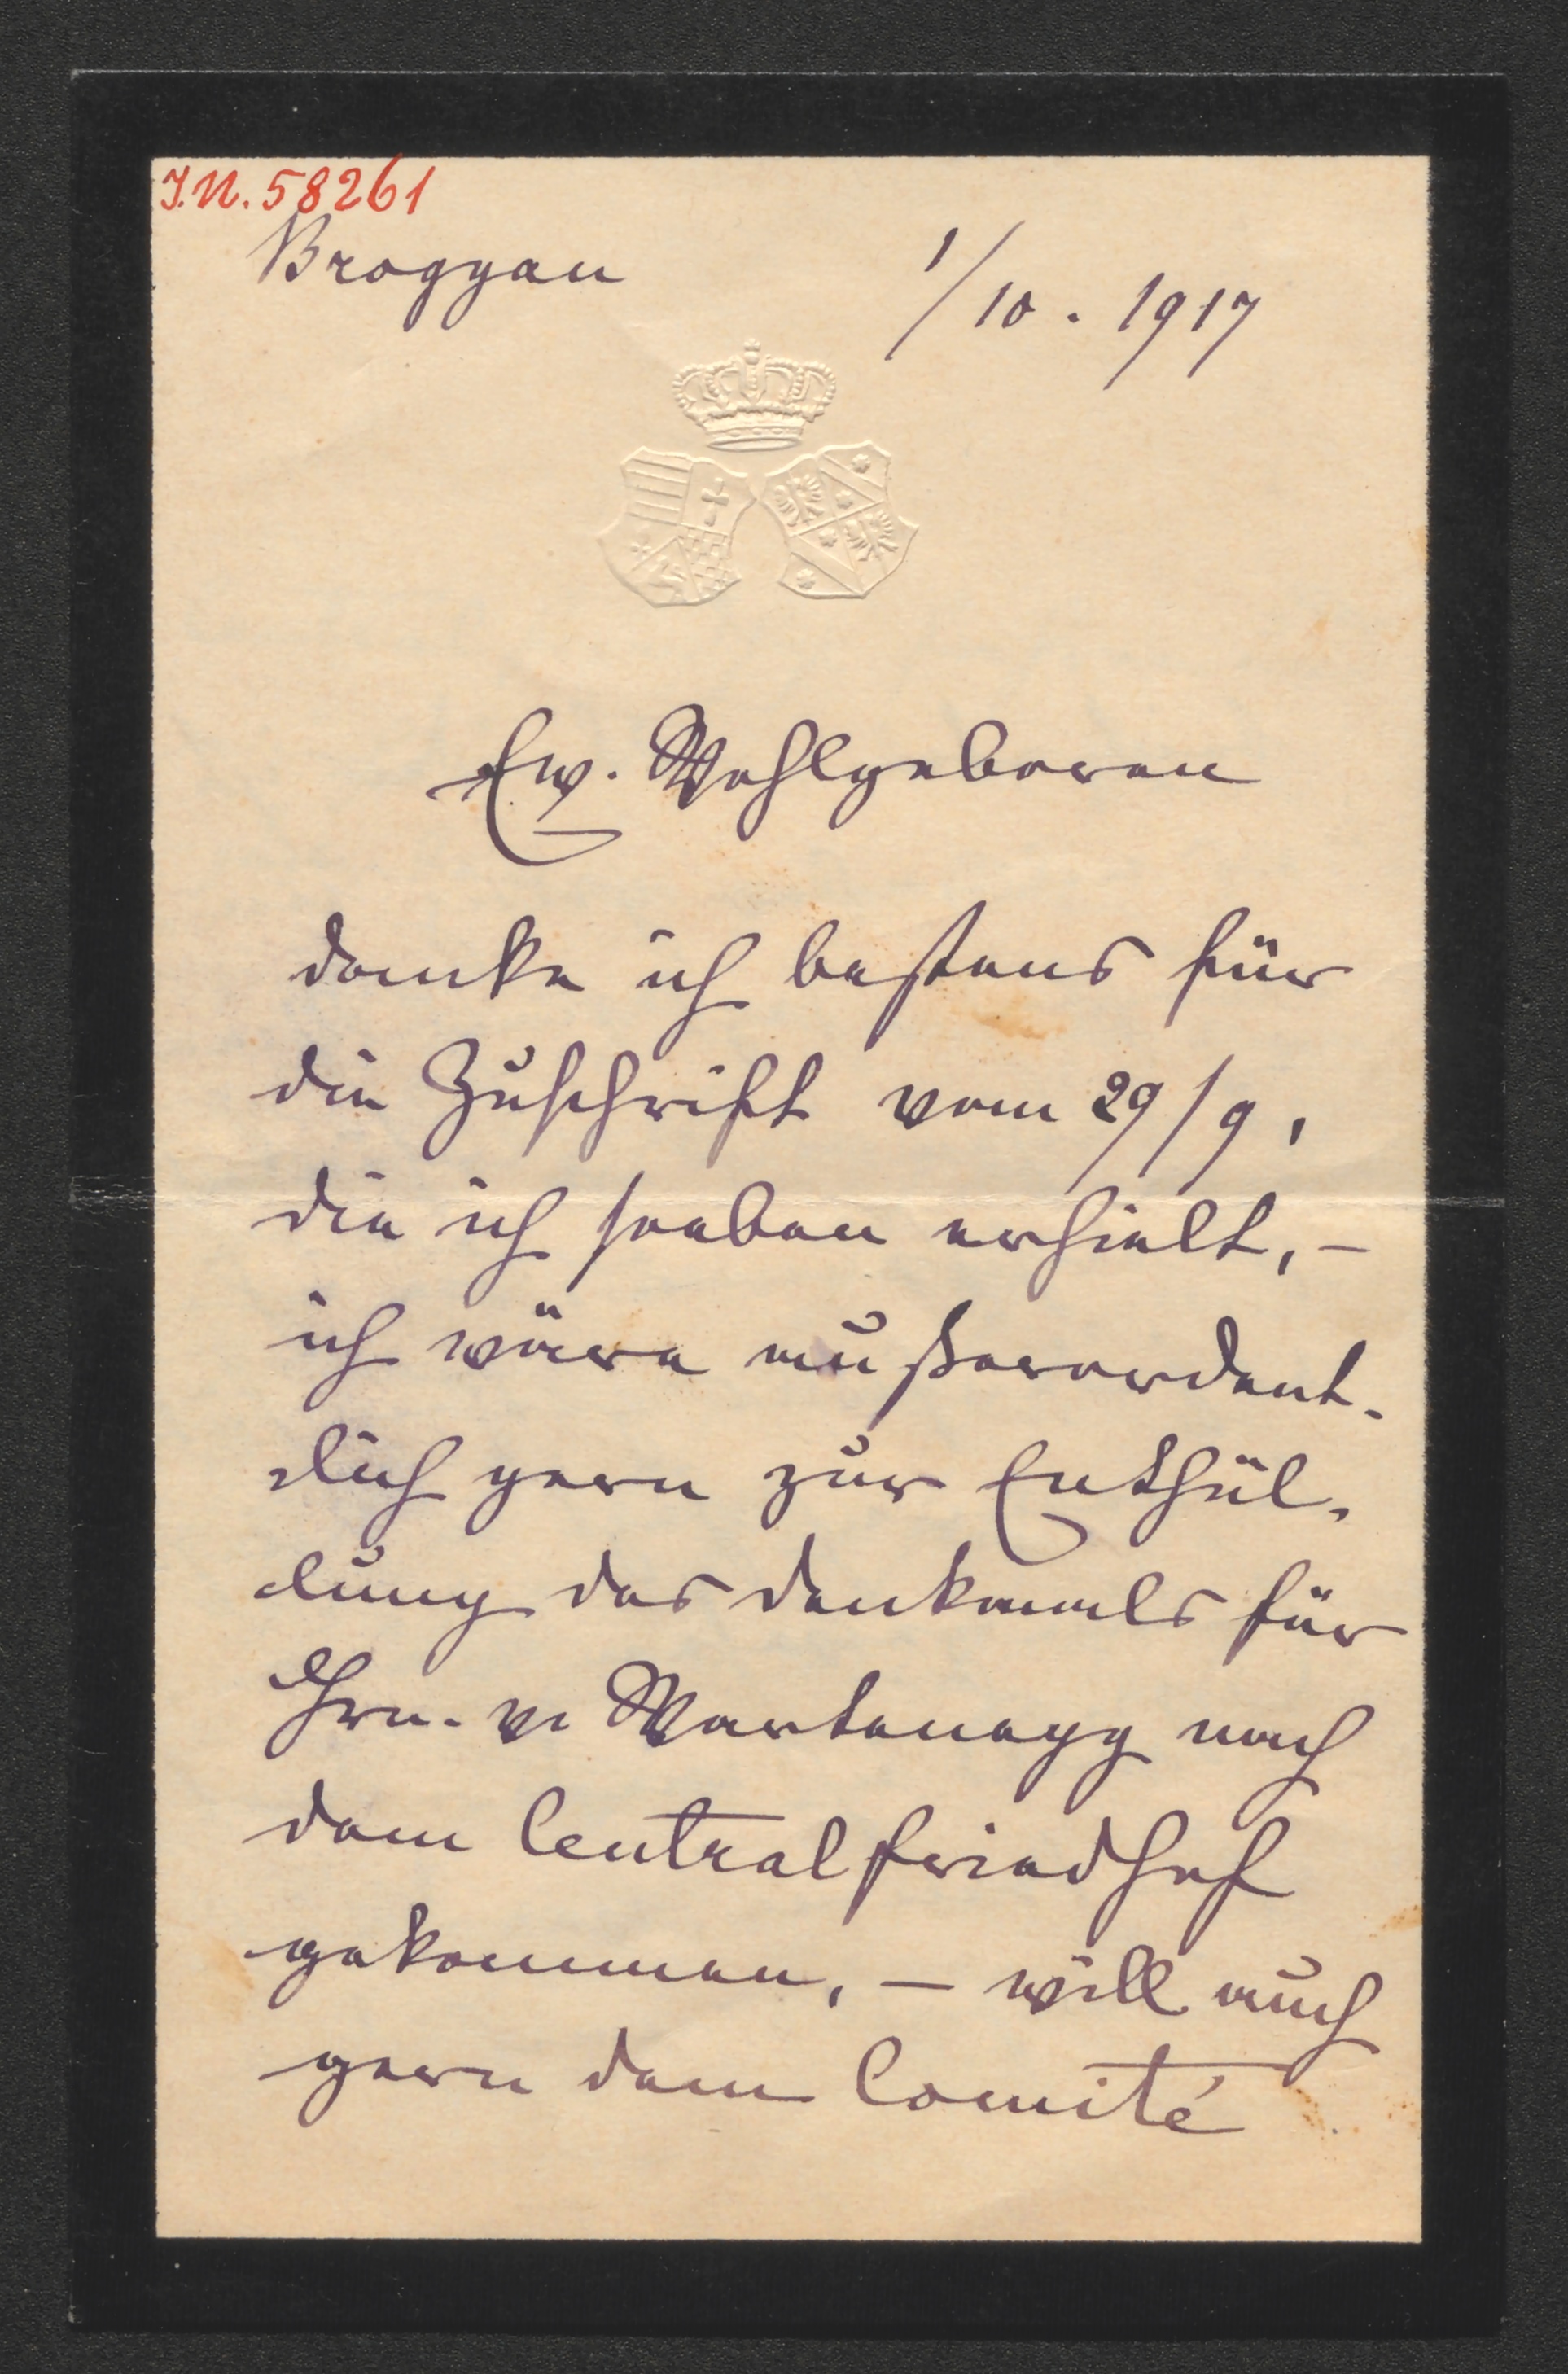 I.N. 58261
Broggau
1/10. 1917
Ew. Wohlgeboren
danke ich bestens für
die Zuschrift vom 29/9,
die ich soeben erhielt, –
ich wäre außerordent-
lich gern zur Enthül-
lung des Denkmals für
Hrn. v. Wartenegg nach
dem Centralfriedhof
gekommen, – will auch
gern dem Comité